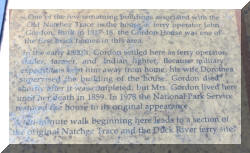 One of the few remaining buildings associated with the
Old Natchez Trace is the house of ferry operator John
Gordon. Built in 1817-18, the Gordon House was one of
the first brick houses in this area.
In the early 1800's, Gordon settled here as ferry operator,
trader, farmer, and Indian fighter. Because military
expeditions kept him away from home, his wife Dorothea
supervised the building of the house. Gordon died
shortly after it was completed, but Mrs. Gordon lived here
until her death in 1859. In 1978 the National Park Service
restored the house to its original appearance.
minute walk beginning here leads to a section of
the original Natchez Trace and the Duck River ferry site.